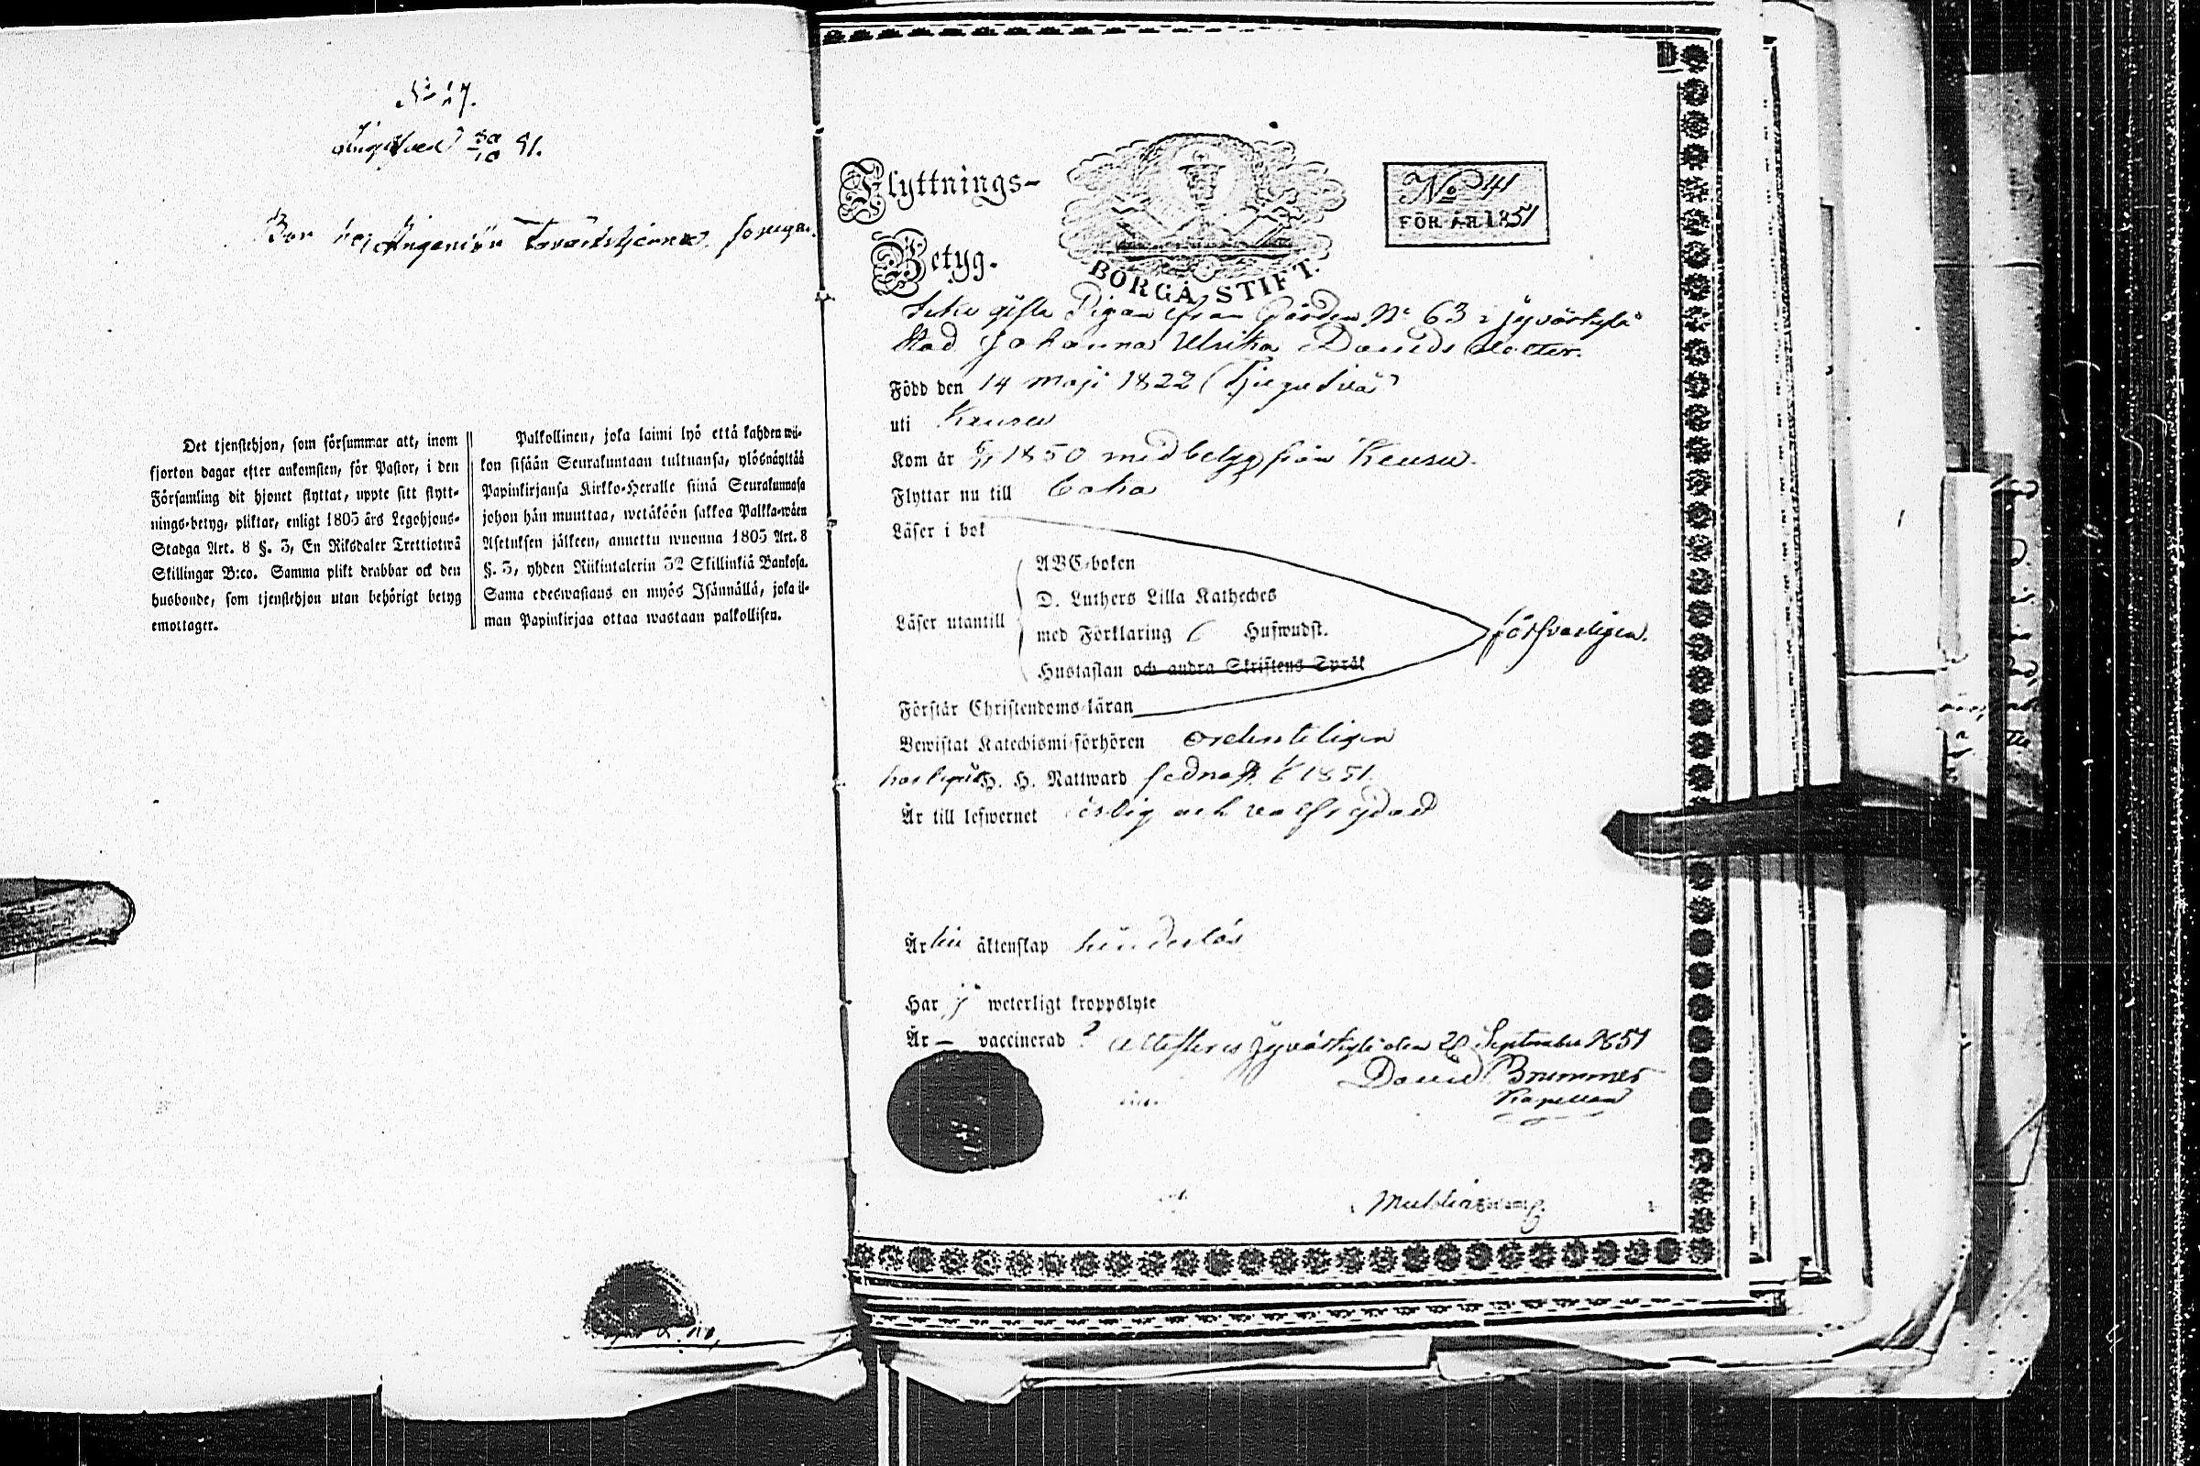 No 17.
Angifven 30/10 51.
Bor hos Ingeniör
Det tjenstehjon, som försummar att, inom
fjorton dagar efter ankomsten, för Pastor, i den
Församling dit hjonet flyttat, uppte sitt flytt-
nings-betyg, pliktar, enligt 1805 års Legohjons-
Stadga Art. 8 §. 3, En Riksdaler Trettiotwå
Skillingar B:co. Samma plikt drabbar ock den
husbonde, som tjenstehjon utan behörigt betyg
emottager.
Palkollinen, joka laimi lyö että kahden wii-
kon sisään Seurakuntaan tultuansa, ylösnäyttää
Papinkirjansa Kirkko-Heralle siinä Seurakunnasa
johon hän muuttaa, wetäköön sakkoa Palkka-wäen
Asetuksen jälkeen, annettu wuonna 1805 Art. 8
§. 3, yhden Riikintalerin 32 Skillinkiä Bankosa.
Sama edeswastaus on myös Isännällä, joka il-
man Papinkirjaa ottaa wastaan palkollisen.
Flyttnings-
Betyg.
BORGÅ STIFT.
No 41
FÖR ÅR 1851
Icke gifta Pigan från Gården No 63 i Jyväskylä
Stad Johanna Ulrika Davidsdotter.
Född den 14 maji 1822 (tjugutvå)
uti Keuru
Kom år 1850 med betyg från Keuru.
Flyttar nu till
Läser i bok
Läser utantill
ABC-boken
D. Luthers Lilla Katheches
med Förklaring Hufwudst.
Hustaflan och andra Skriftens Språk
försvarligen.
Förstår Christendoms-läran
Bewistat Katechismi-förhören ordenteligen
har begått H. H. Nattward sednast 1851.
Är till lefwernet ärlig och välfrejdad
Är till äktenskap hinderlös
Har ej weterligt kroppslyte
Är — vaccinerad ? attesteras Jyväskylä den 28 September 1851
David Brummer
Kapellan